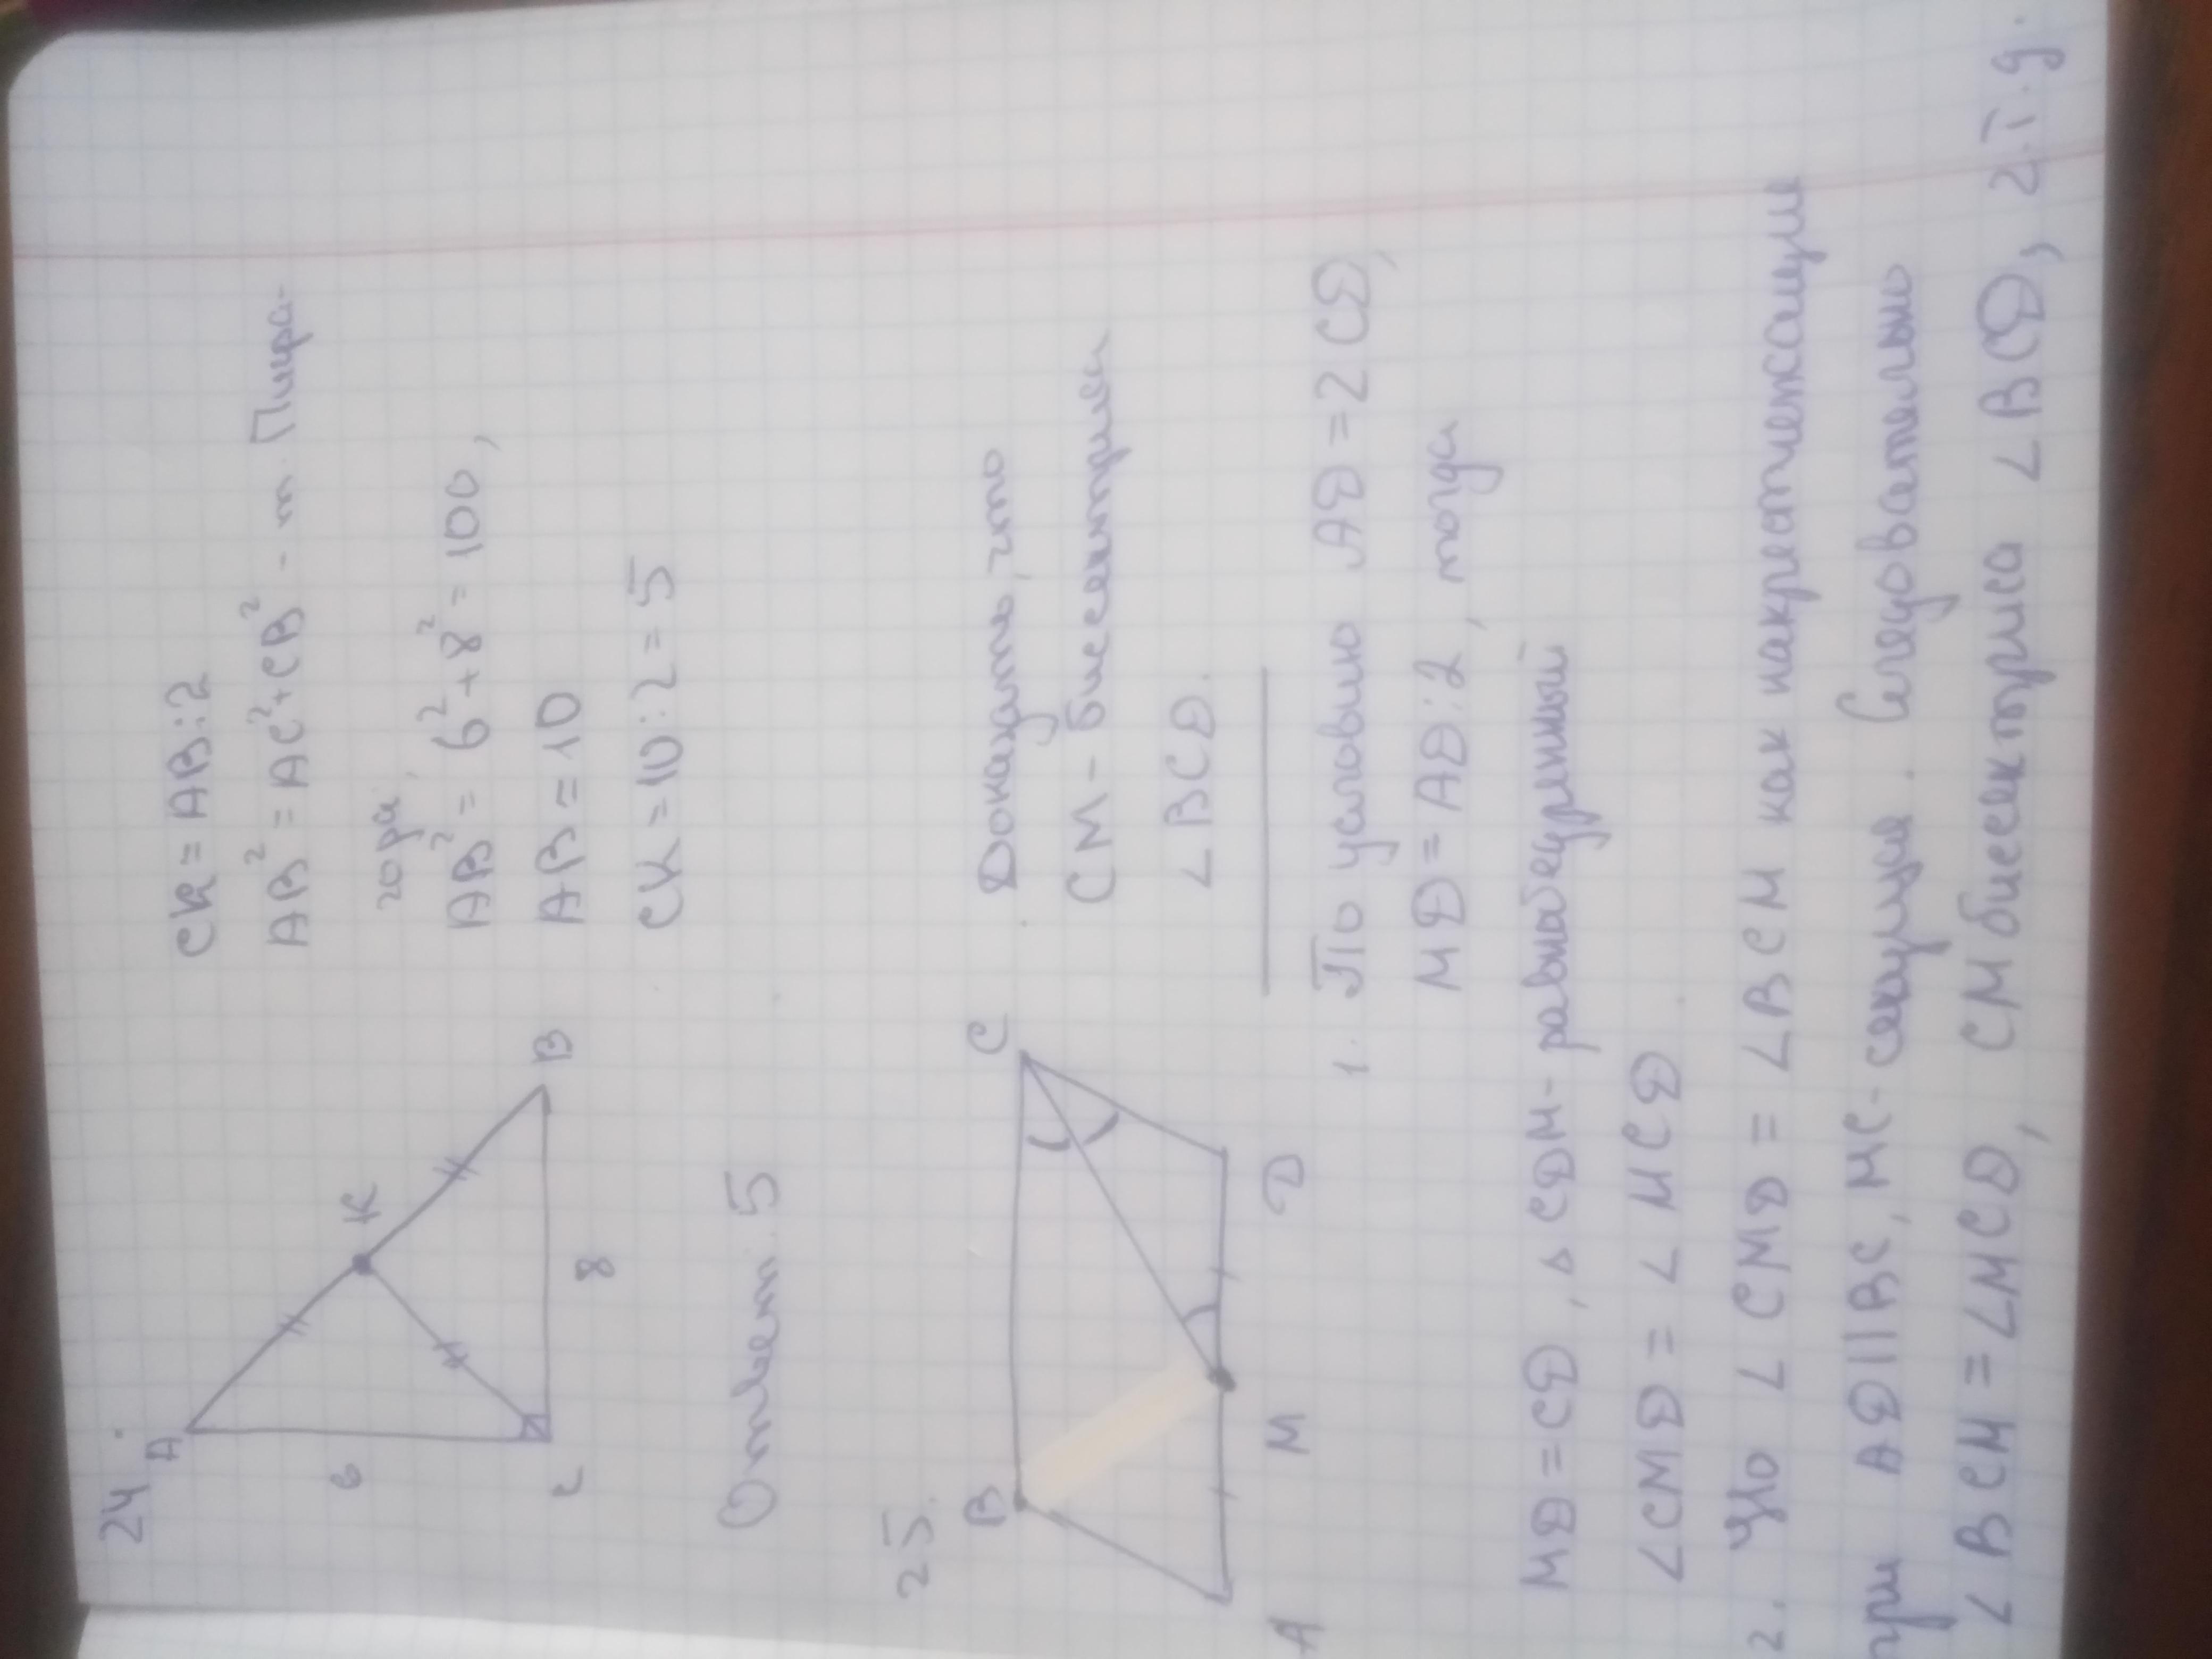 24.
A
K
6
C
8
B
CK = AB:2
AB² = AC²+CB² - т. Пифа-
гора,
AB² = 6²+8² = 100,
AB = 10
CK = 10:2 = 5
Ответ: 5
25.
B
C
A
M
D
Доказать, что
CM - биссектриса
∠BCD.
1. По условию AD = 2CD,
MD = AD:2, тогда
MD = CD, △ CDM - равнобедренный
∠CMD = ∠MCD
2. Но ∠CMD = ∠BCM как накрестлежащие
при AD||BC, MC - секущая. Следовательно
∠BCM = ∠MCD, CM биссектриса ∠BCD, ч.т.д.